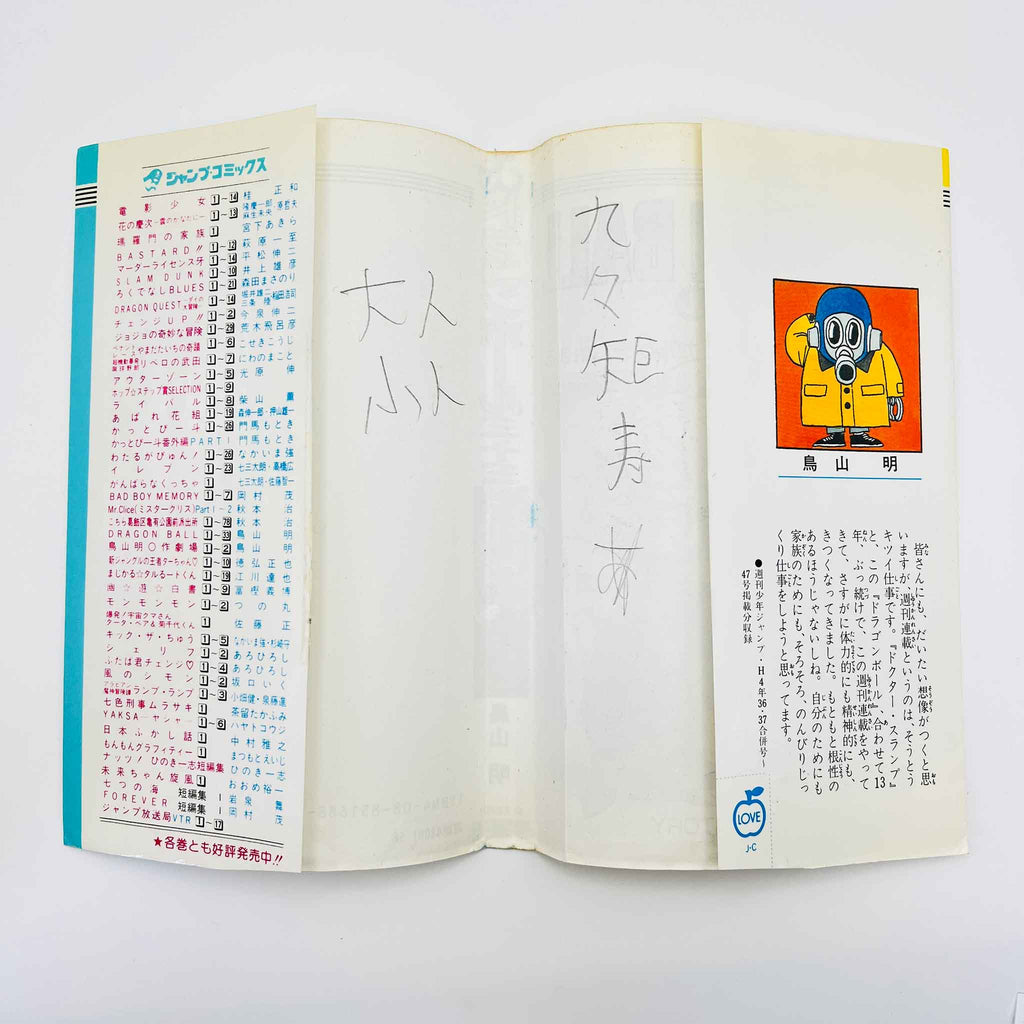 ジャンプ・コミックス
電影少女 1~14 桂正和
花の慶次―雲のかなたに― 1~13 隆慶一郎・原哲夫 麻生未央
瑪羅門の家族 1 宮下あきら
BASTARD!! 1~12 萩原一至
マーダーライセンス牙 1~14 平松伸二
SLAM DUNK 1~10 井上雄彦
ろくでなしBLUES 1~21 森田まさのり
DRAGON QUEST―ダイの大冒険― 1~14 三条陸・稲田浩司 堀井雄二
チェンジUP!! 1~2 今泉伸二
ジョジョの奇妙な冒険 1~29 荒木飛呂彦
ペナントレース やまだたいちの奇蹟 1~6 こせきこうじ
超機動暴発蹴球野郎 リベロの武田 1~7 にわのまこと
アウターゾーン 1~5 光原伸
ホップ☆ステップ賞SELECTION 1~9
ライバル 1~8 柴山薫
あばれ花組 1~19 森伸一郎・押山雄一
かっとび一斗 1~26 門馬もとき
かっとび一斗番外編PART1 門馬もとき
わたるがぴゅん! 1~26 なかいま強
イレブン 1~23 七三太朗・高橋広
がんばらなくっちゃ 1 七三太朗・佐藤智一
BAD BOY MEMORY 1~7 岡村茂
Mr.Clice(ミスタークリス)Part1~2 秋本治
こちら葛飾区亀有公園前派出所 1~78 秋本治
DRAGON BALL 1~33 鳥山明
鳥山明○作劇場 1~2 鳥山明
新ジャングルの王者ターちゃん♡ 1~10 徳弘正也
まじかる☆タルるートくん 1~19 江川達也
幽☆遊☆白書 1~9 冨樫義博
モンモンモン 1~2 つの丸
爆発!宇宙クマさん タータ・ベア&菊千代くん 1 佐藤正
キック・ザ・ちゅう 1~5 なかいま強・杉崎守
シェリフ 1~2 あろひろし
ふたば君チェンジ♡ 1~4 あろひろし
風のシモン 1~2 坂口いく
アラビアン魔神冒険譚 ランプ・ランプ 1~3 小畑健・泉藤進
七色刑事ムラサキ 1 茶留たかふみ
YAKSA―ヤシャ― 1~6 ハヤトコウジ
日本ふかし話 1 中村雅之
もんもんグラフィティー 1 まつもとえいじ
ナッツ! ひのき一志短編集 ひのき一志
未来ちゃん旋風 1 おおめ裕一
七つの海 短編集1 岩泉舞
FOREVER 短編集1 岡村茂
ジャンプ放送局VTR 1~17
★各巻とも好評発売中!!
大人
小人
九々矩寿あ
鳥山明
皆さんにも、だいたい想像がつくと思
いますが、週刊連載というのは、そうとう
キツイ仕事です。『ドクター・スランプ』
と、この『ドラゴンボール』、合わせて13
年、ぶっ続けで、この週刊連載をやって
きて、さすがに体力的にも精神的にも、
きつくなってきました。もともと根性の
あるほうじゃないしね。自分のためにも
家族のためにも、そろそろ、のんびりじっ
くり仕事をしようと思ってます。
●週刊少年ジャンプ・H4年36・37合併号~
47号掲載分収録
LOVE
J・C